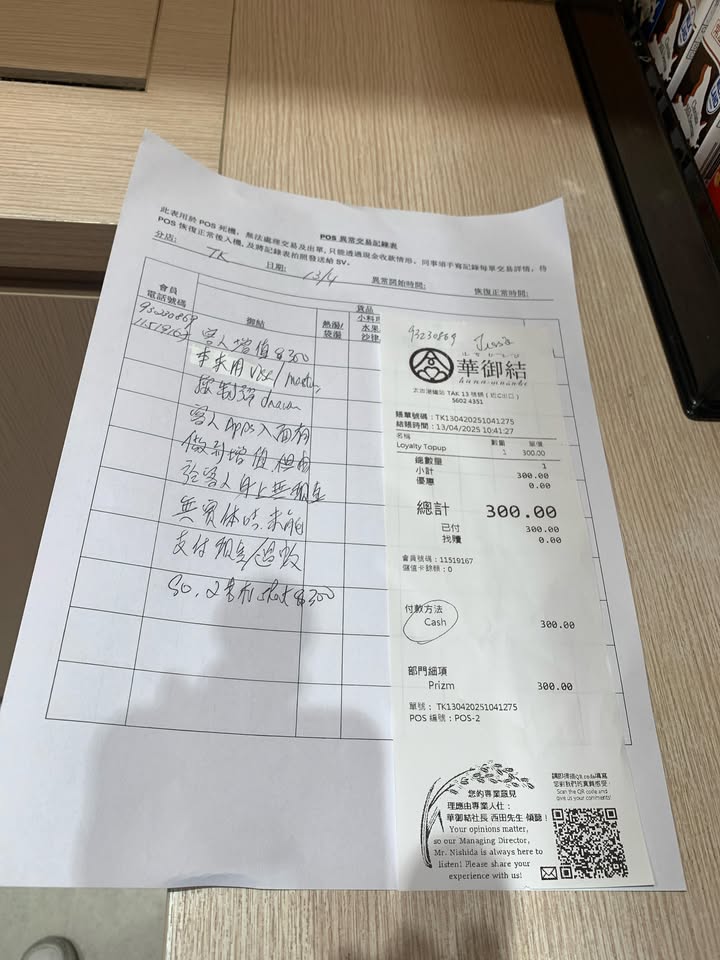 POS 異常交易記錄表
此表用於 POS 死機，無法處理交易及出單，只能透過現金收款情形，同事須手寫記錄每單交易詳情，待
POS 恢復正常後入機，及將記錄表拍照發送給 SV。
分店： TK 日期： 13/4 異常開始時間： 恢復正常時間：
會員
電話號碼
貨品
御結
熱湯/
袋湯
水果
沙律
93230869
11519167
客人增值 $300
本來用 Visa/master
客人 apps 入面有
做到增值 但由
於客人身上無現金
支付現金
93230869
華御結
hana-musubi
太古港鐵站 TAK 13 號舖（近C出口）
5602 4351
賬單號碼：TK130420251041275
結賬時間：13/04/2025 10:41:27
名稱 數量 單價
Loyalty Topup 1 300.00
總數量 1
小計 300.00
優惠 0.00
總計 300.00
已付 300.00
找贖 0.00
會員號碼：11519167
儲值卡餘額：0
付款方法
Cash 300.00
部門細項
Prizm 300.00
單號：TK130420251041275
POS 編號：POS-2
您的專業意見
理應由專業人仕：
華御結社長 西田先生 傾聽！
Your opinions matter,
so our Managing Director,
Mr. Nishida is always here to
listen! Please share your
experience with us!
Scan the QR code and
give us your comments!